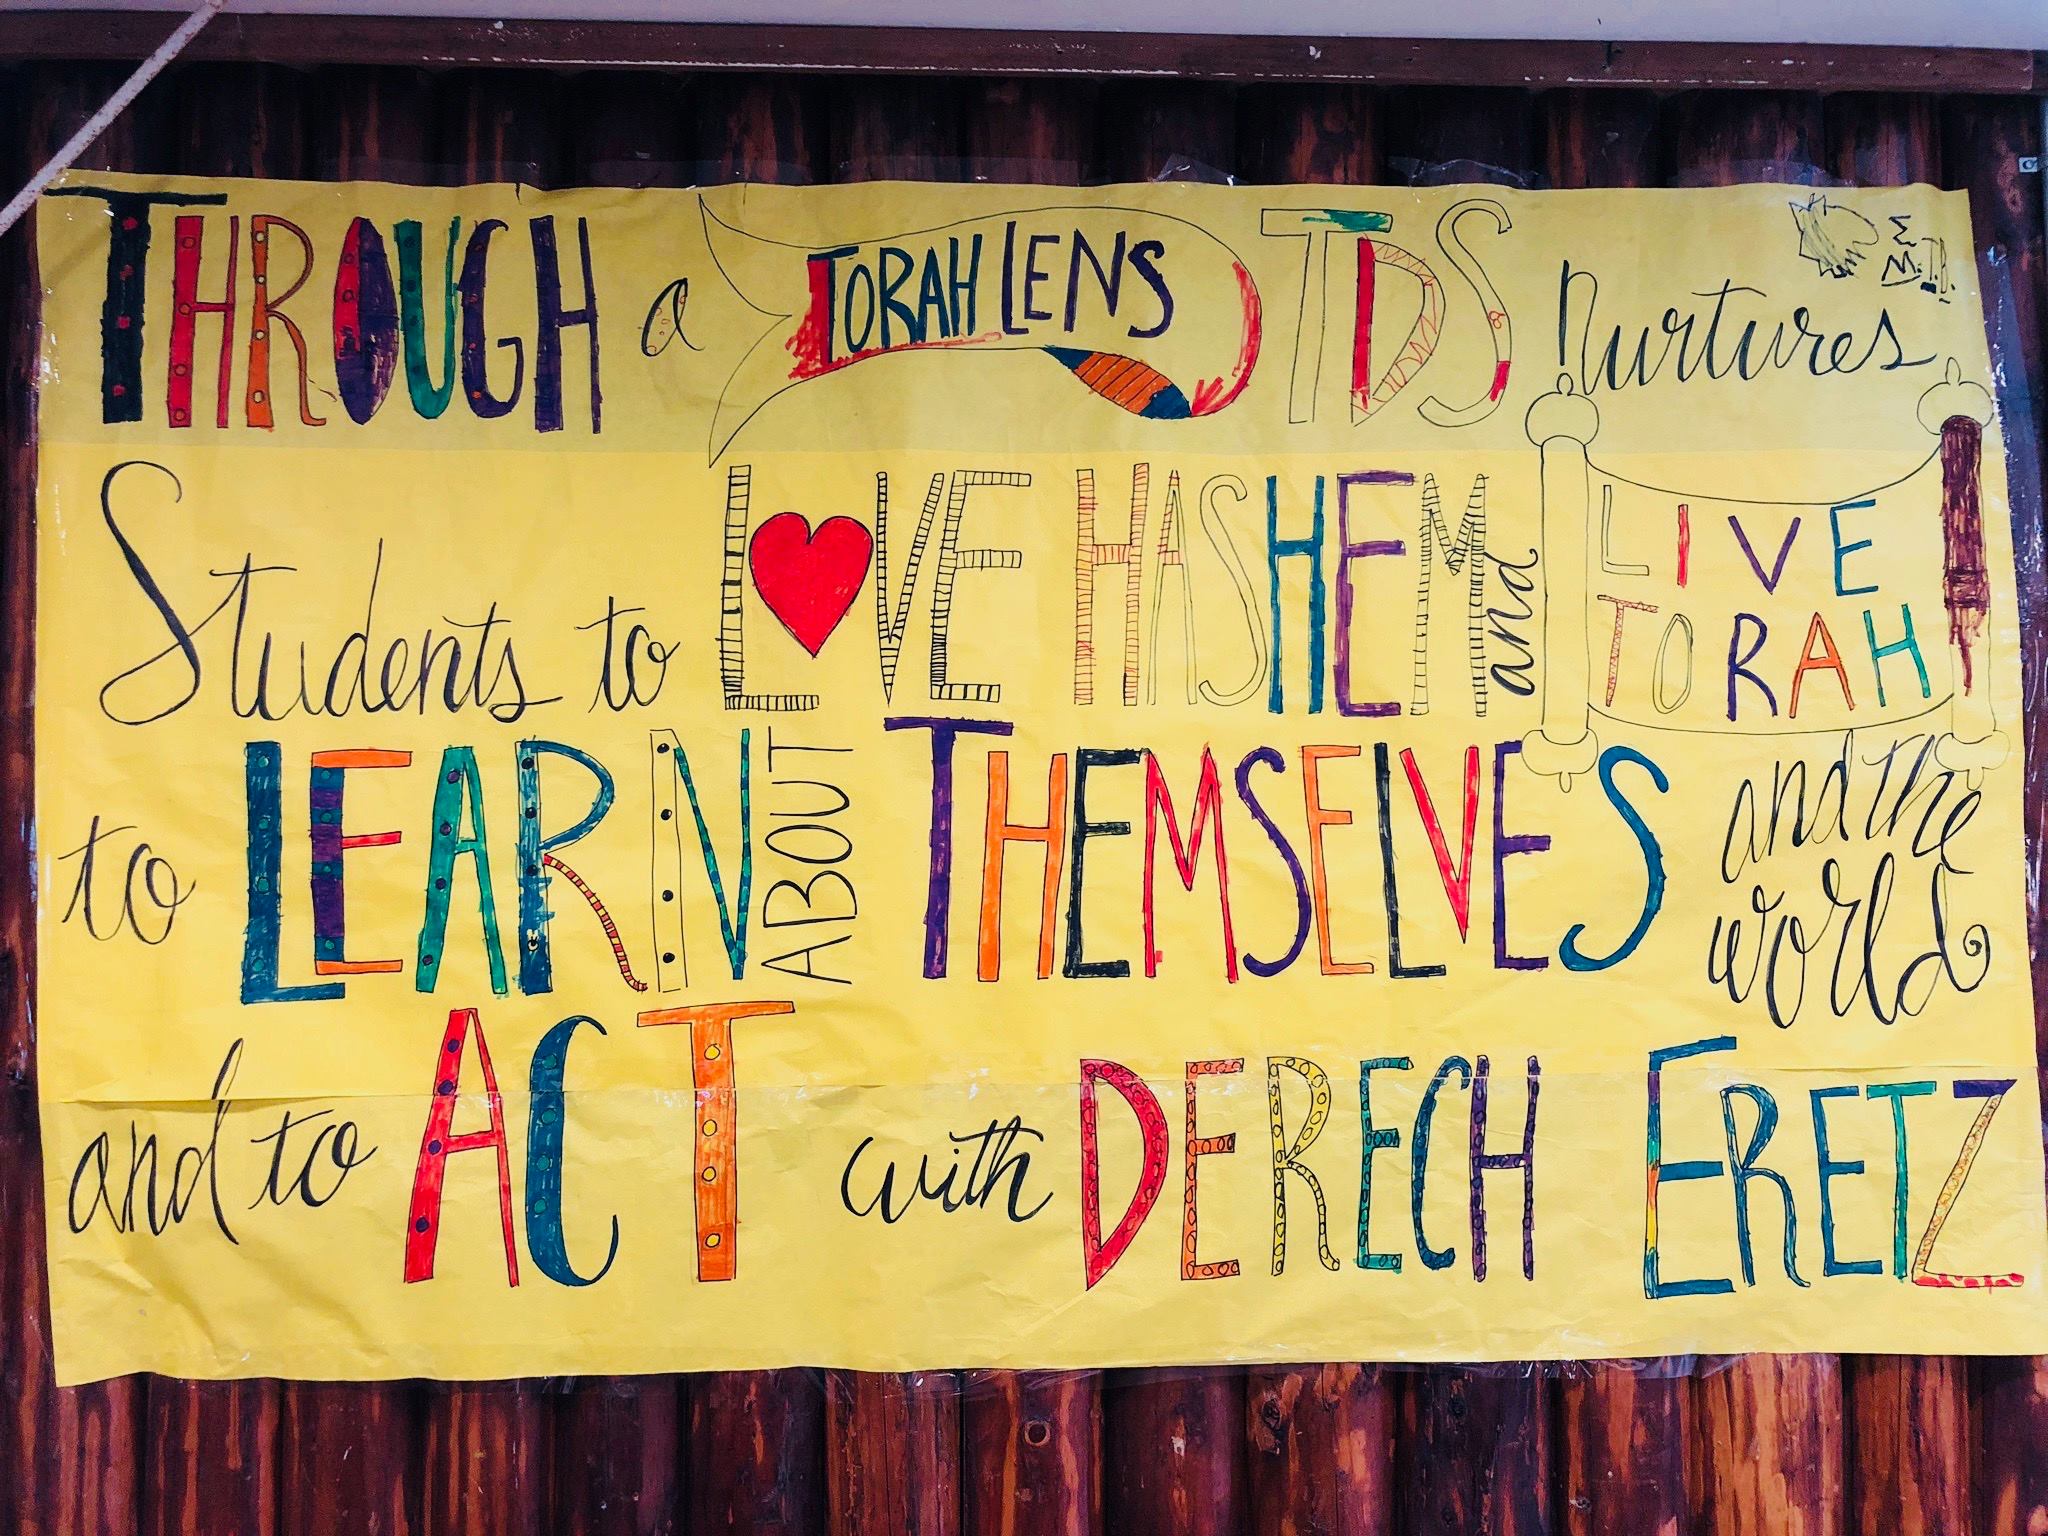 THROUGH a TORAH LENS TDS nurtures
Students to LOVE HASHEM and LIVE TORAH
to LEARN ABOUT THEMSELVES and the world
and to ACT with DERECH ERETZ